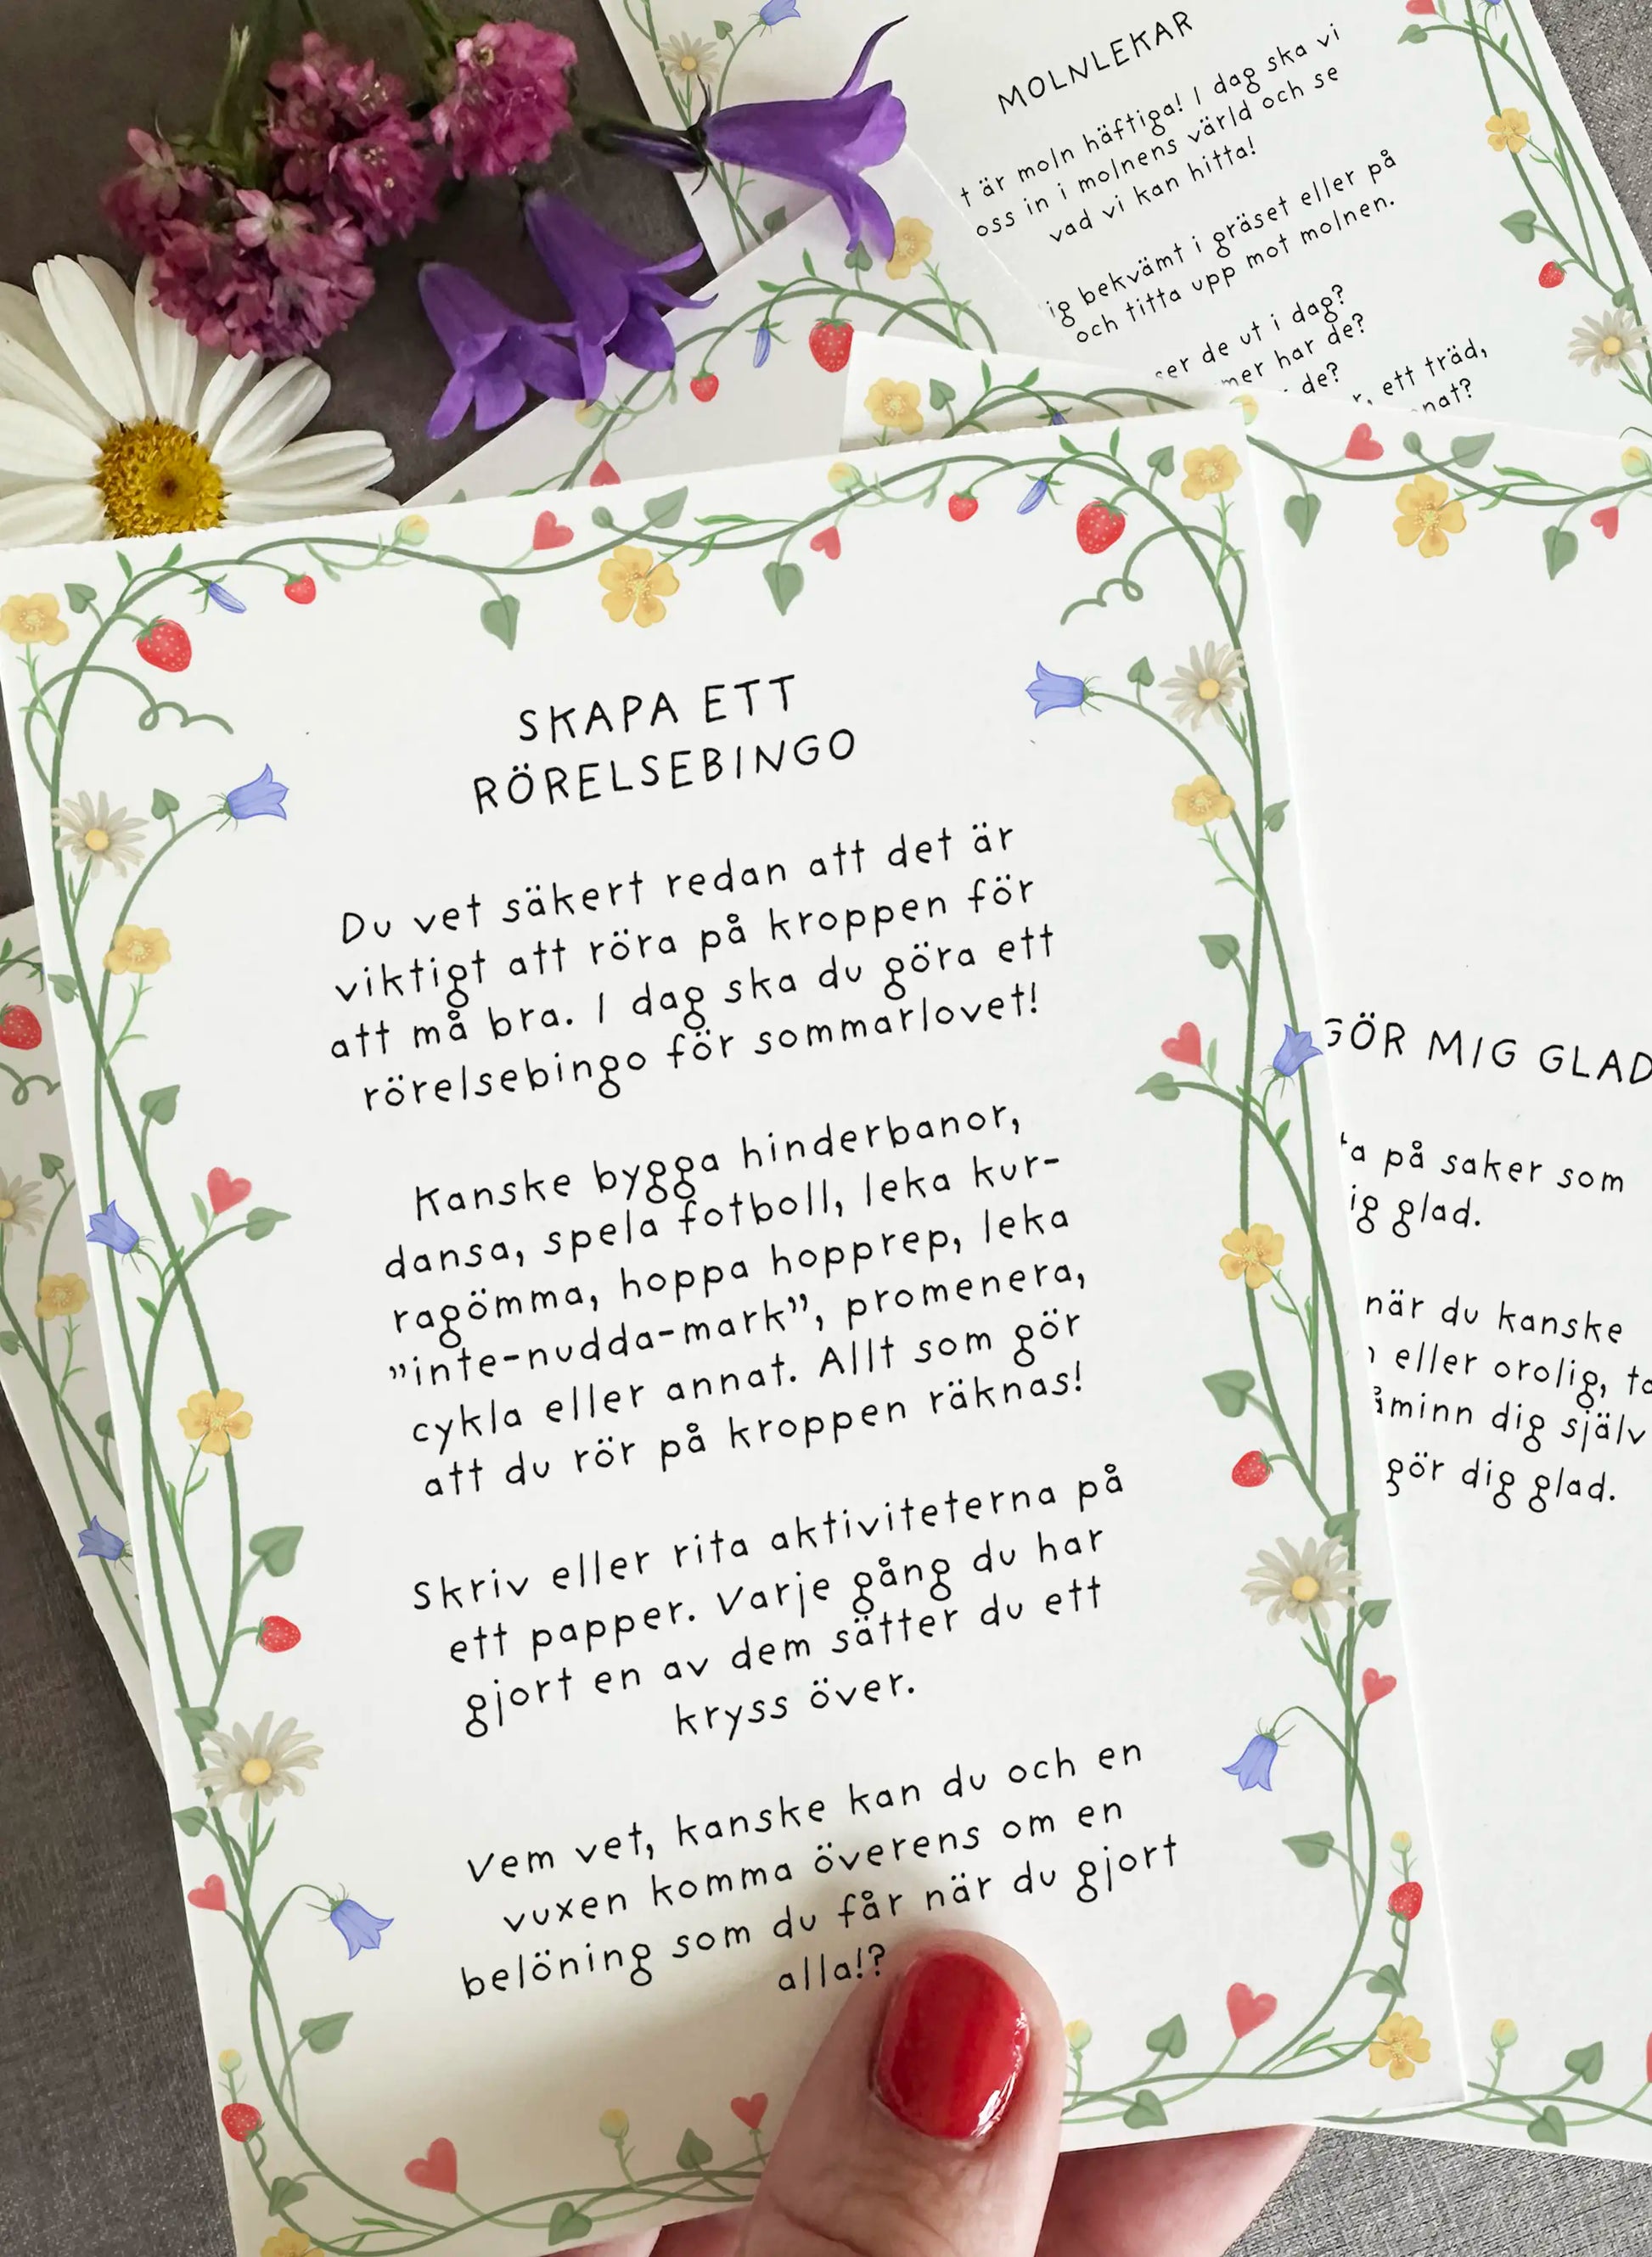 MOLNLEKAR
är moln häftiga! I dag ska vi
oss in i molnens värld och se
vad vi kan hitta!
bekvämt i gräset eller på
och titta upp mot molnen.
de ut i dag?
har de?
de?
ett träd,
SKAPA ETT
RÖRELSEBINGO
Du vet säkert redan att det är
viktigt att röra på kroppen för
att må bra. I dag ska du göra ett
rörelsebingo för sommarlovet!
Kanske bygga hinderbanor,
dansa, spela fotboll, leka kur-
ragömma, hoppa hopprep, leka
”inte-nudda-mark”, promenera,
cykla eller annat. Allt som gör
att du rör på kroppen räknas!
Skriv eller rita aktiviteterna på
ett papper. Varje gång du har
gjort en av dem sätter du ett
kryss över.
Vem vet, kanske kan du och en
vuxen komma överens om en
belöning som du får när du gjort
alla!?
GÖR MIG GLAD
på saker som
glad.
när du kanske
eller orolig,
dig själv
gör dig glad.